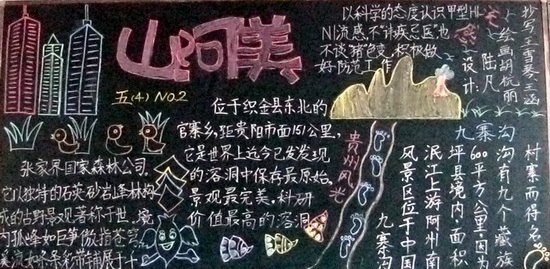 山河美
五(4) NO.2
以科学的态度认识甲型H1
N1流感不讳疾忌医也
不谈猪色变,积极做
好防范工作
抄写:王雪琴 王涵
绘画:胡杭丽
设计:陆凡
位于织金县东北的
官寨乡,距贵阳市面151公里,
它是世界上迄今已发发现
的溶洞中保存最原始,
景观最完美,科研
价值最高的溶洞
贵州风光
张家界国家森林公司.
它以独特的石英砂岩峰林构
成的古野景观著称于世.境
内孤峰如巨笋傲指苍穹,
九寨沟
村寨而得名
沟有九个藏族
600平方公里因为
坪县境内,面积
泯江上游阿州南
风景区位于中国
九寨沟